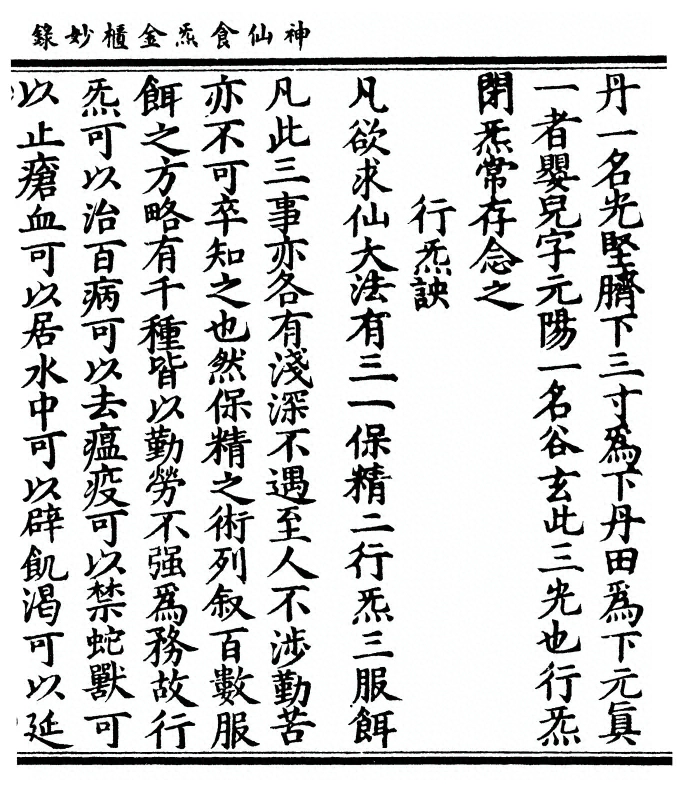 神仙食炁金櫃妙錄
丹一名光堅臍下三寸為下丹田為下元真
一者嬰兒字元陽一名谷玄此三光也行炁
閉炁常存念之
行炁訣
凡欲求仙大法有三一保精二行炁三服餌
凡此三事亦各有淺深不遇至人不涉勤苦
亦不可卒知之也然保精之術列叙百數服
餌之方略有千種皆以勤勞不强為務故行
炁可以治百病可以去瘟疫可以禁蛇獸可
以止瘡血可以居水中可以辟飢渴可以延